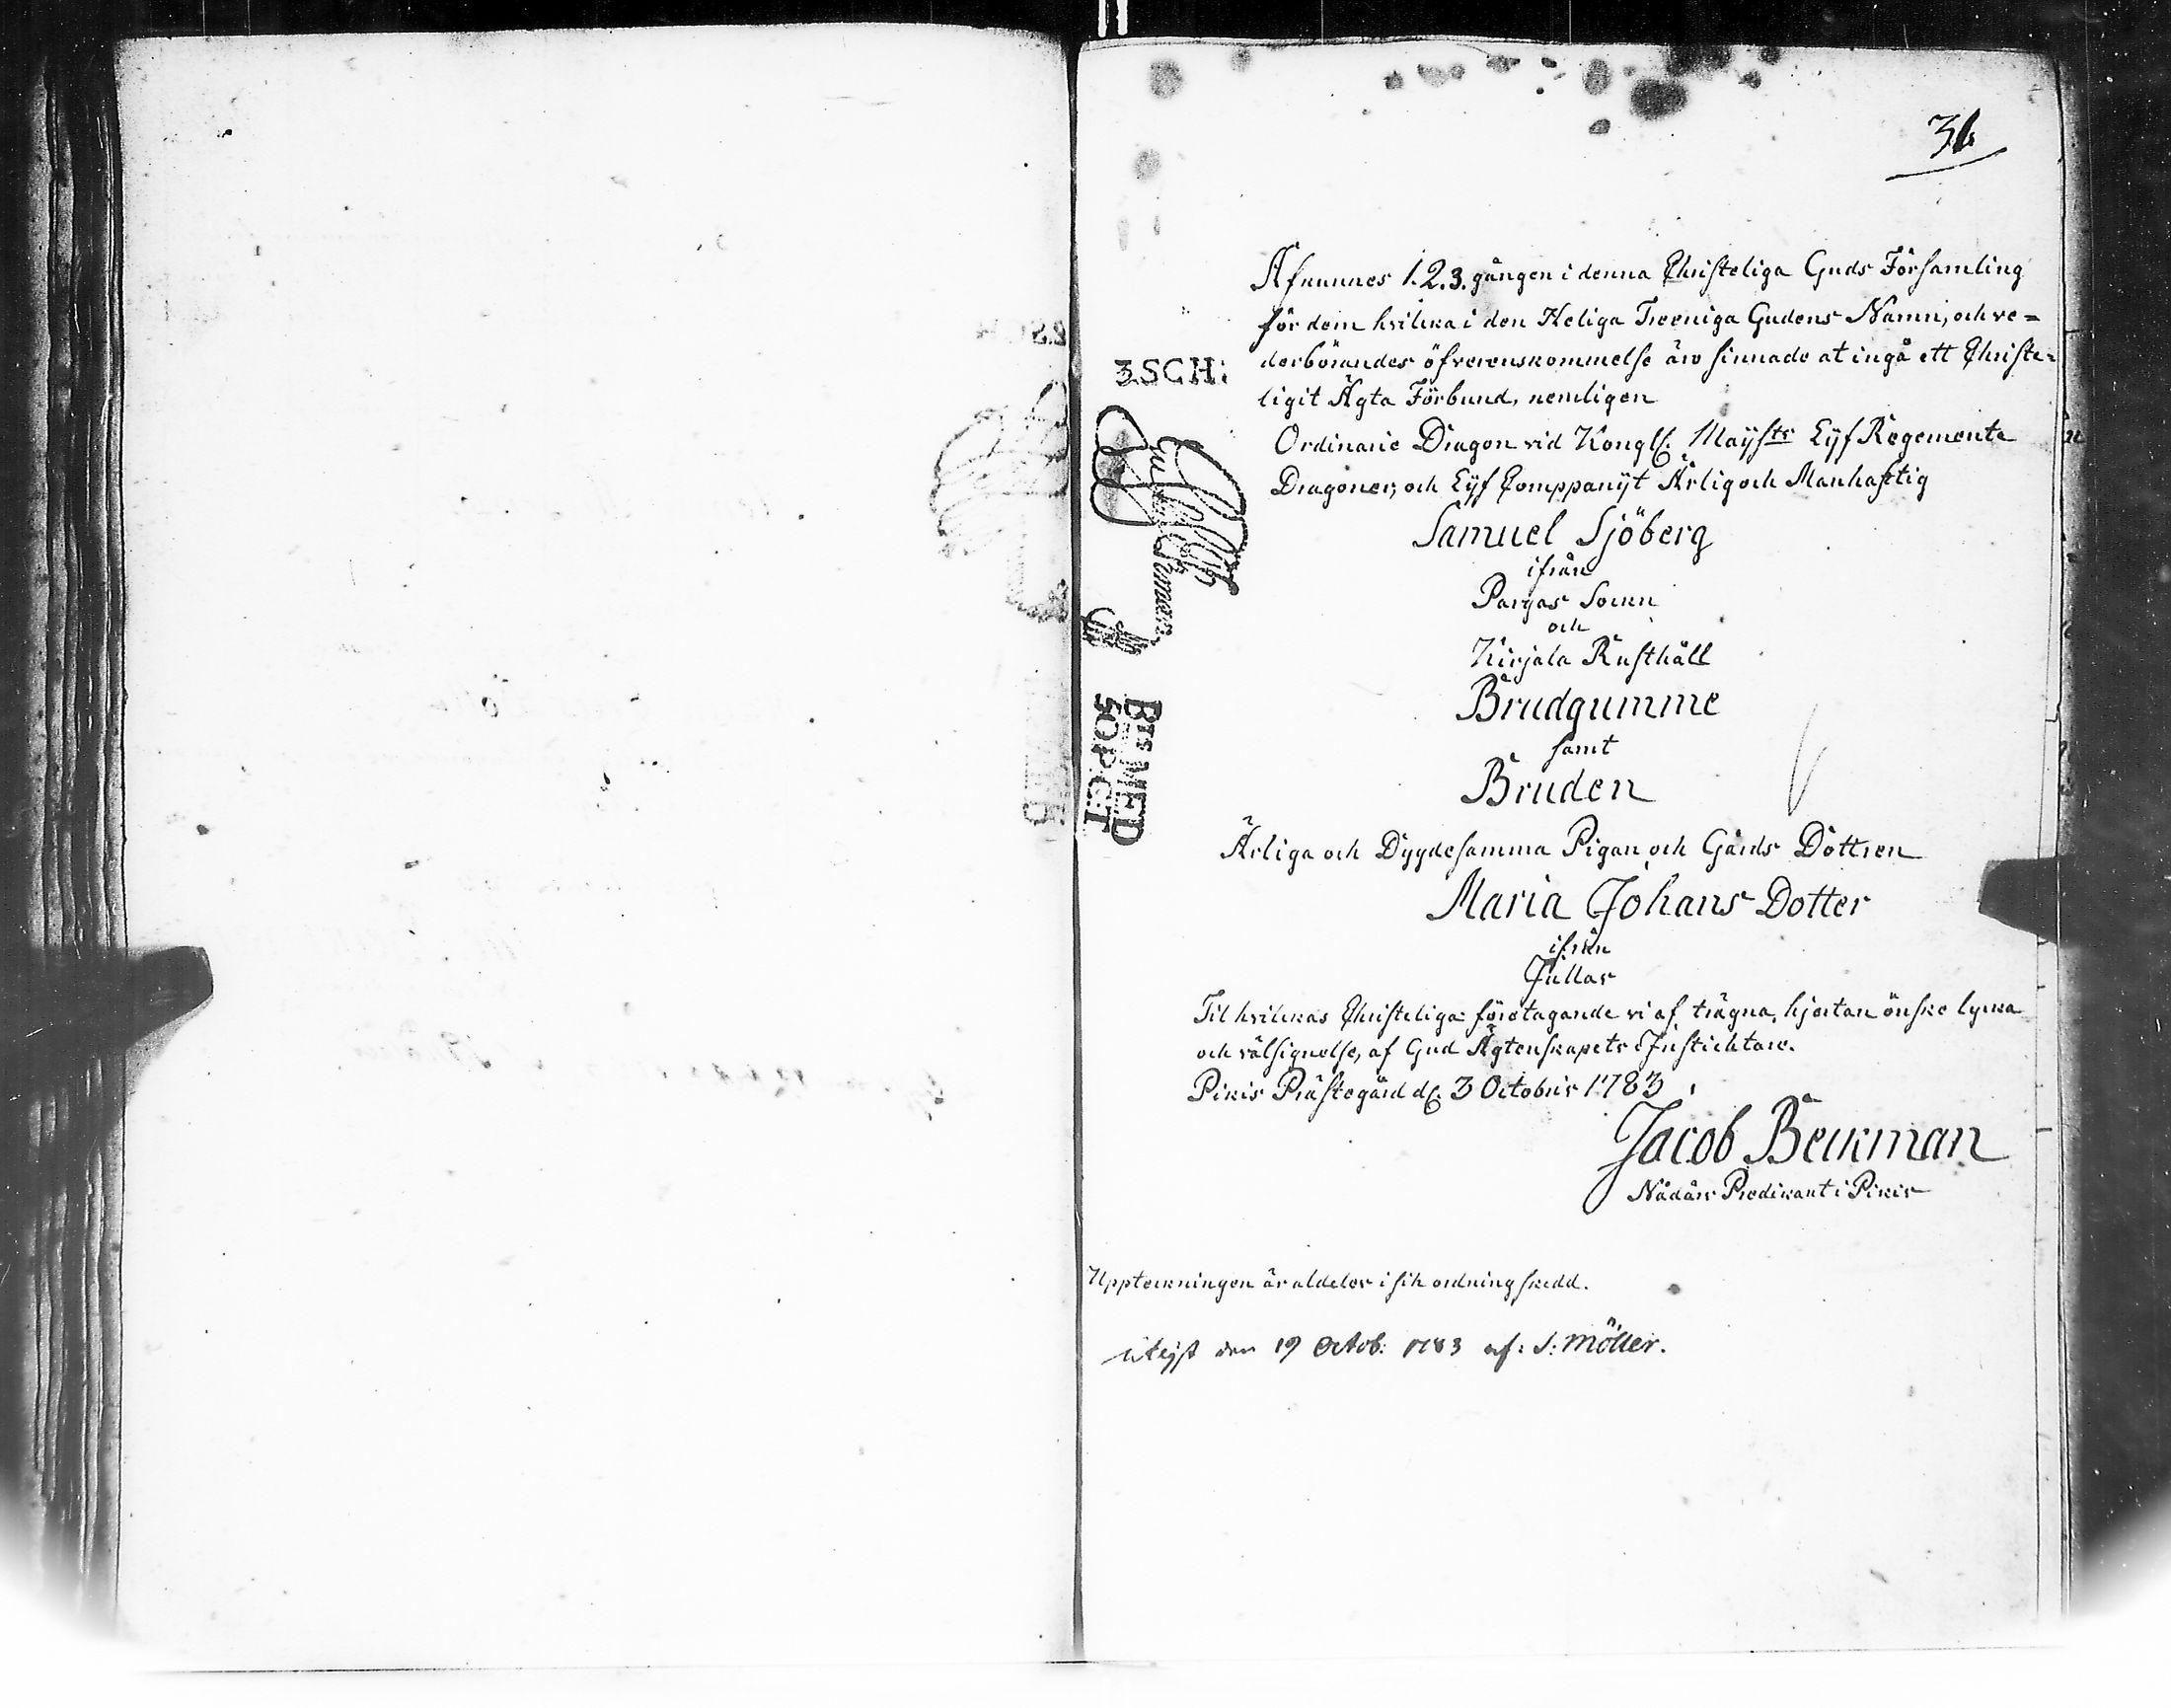 36
Afkunnes 1.2.3. gången i denna Christeliga Guds Församling
för dem hvilcka i den Heliga Treeniga Gudens Namn, och ve=
derbörandes öfverenskommelse äro sinnade at ingå ett Christe=
ligit Ägta Förbund, nemligen
3.SCH:
Ordinarie Dragon vid Kongl. Mayſts Lijf Regemente
Dragoner, och Lijf Comppanijt Ärlig och Manhaftig
Samuel Sjöberg
ifrån
Pargas Socken
och
Kirjala Rusthåll
Brudgumme
samt
Bruden
Ärliga och Dygdesamma Pigan och Gårds Dottren
Maria Johans Dotter
ifrån
Jullas
Til hvilckas Christeliga företagande vi af trägna hjertan önske lycka
och välsignelse, af Gud Ägtenskapets Instichtare.
Pikis Prästegård d. 3 Octobris 1783
Jacob Beckman
Nådårs Predikant i Pikis
Uppteckningen är aldeles i sin ordning skedd.
utlyst den 19 Octob: 1783 af: S: Möller.